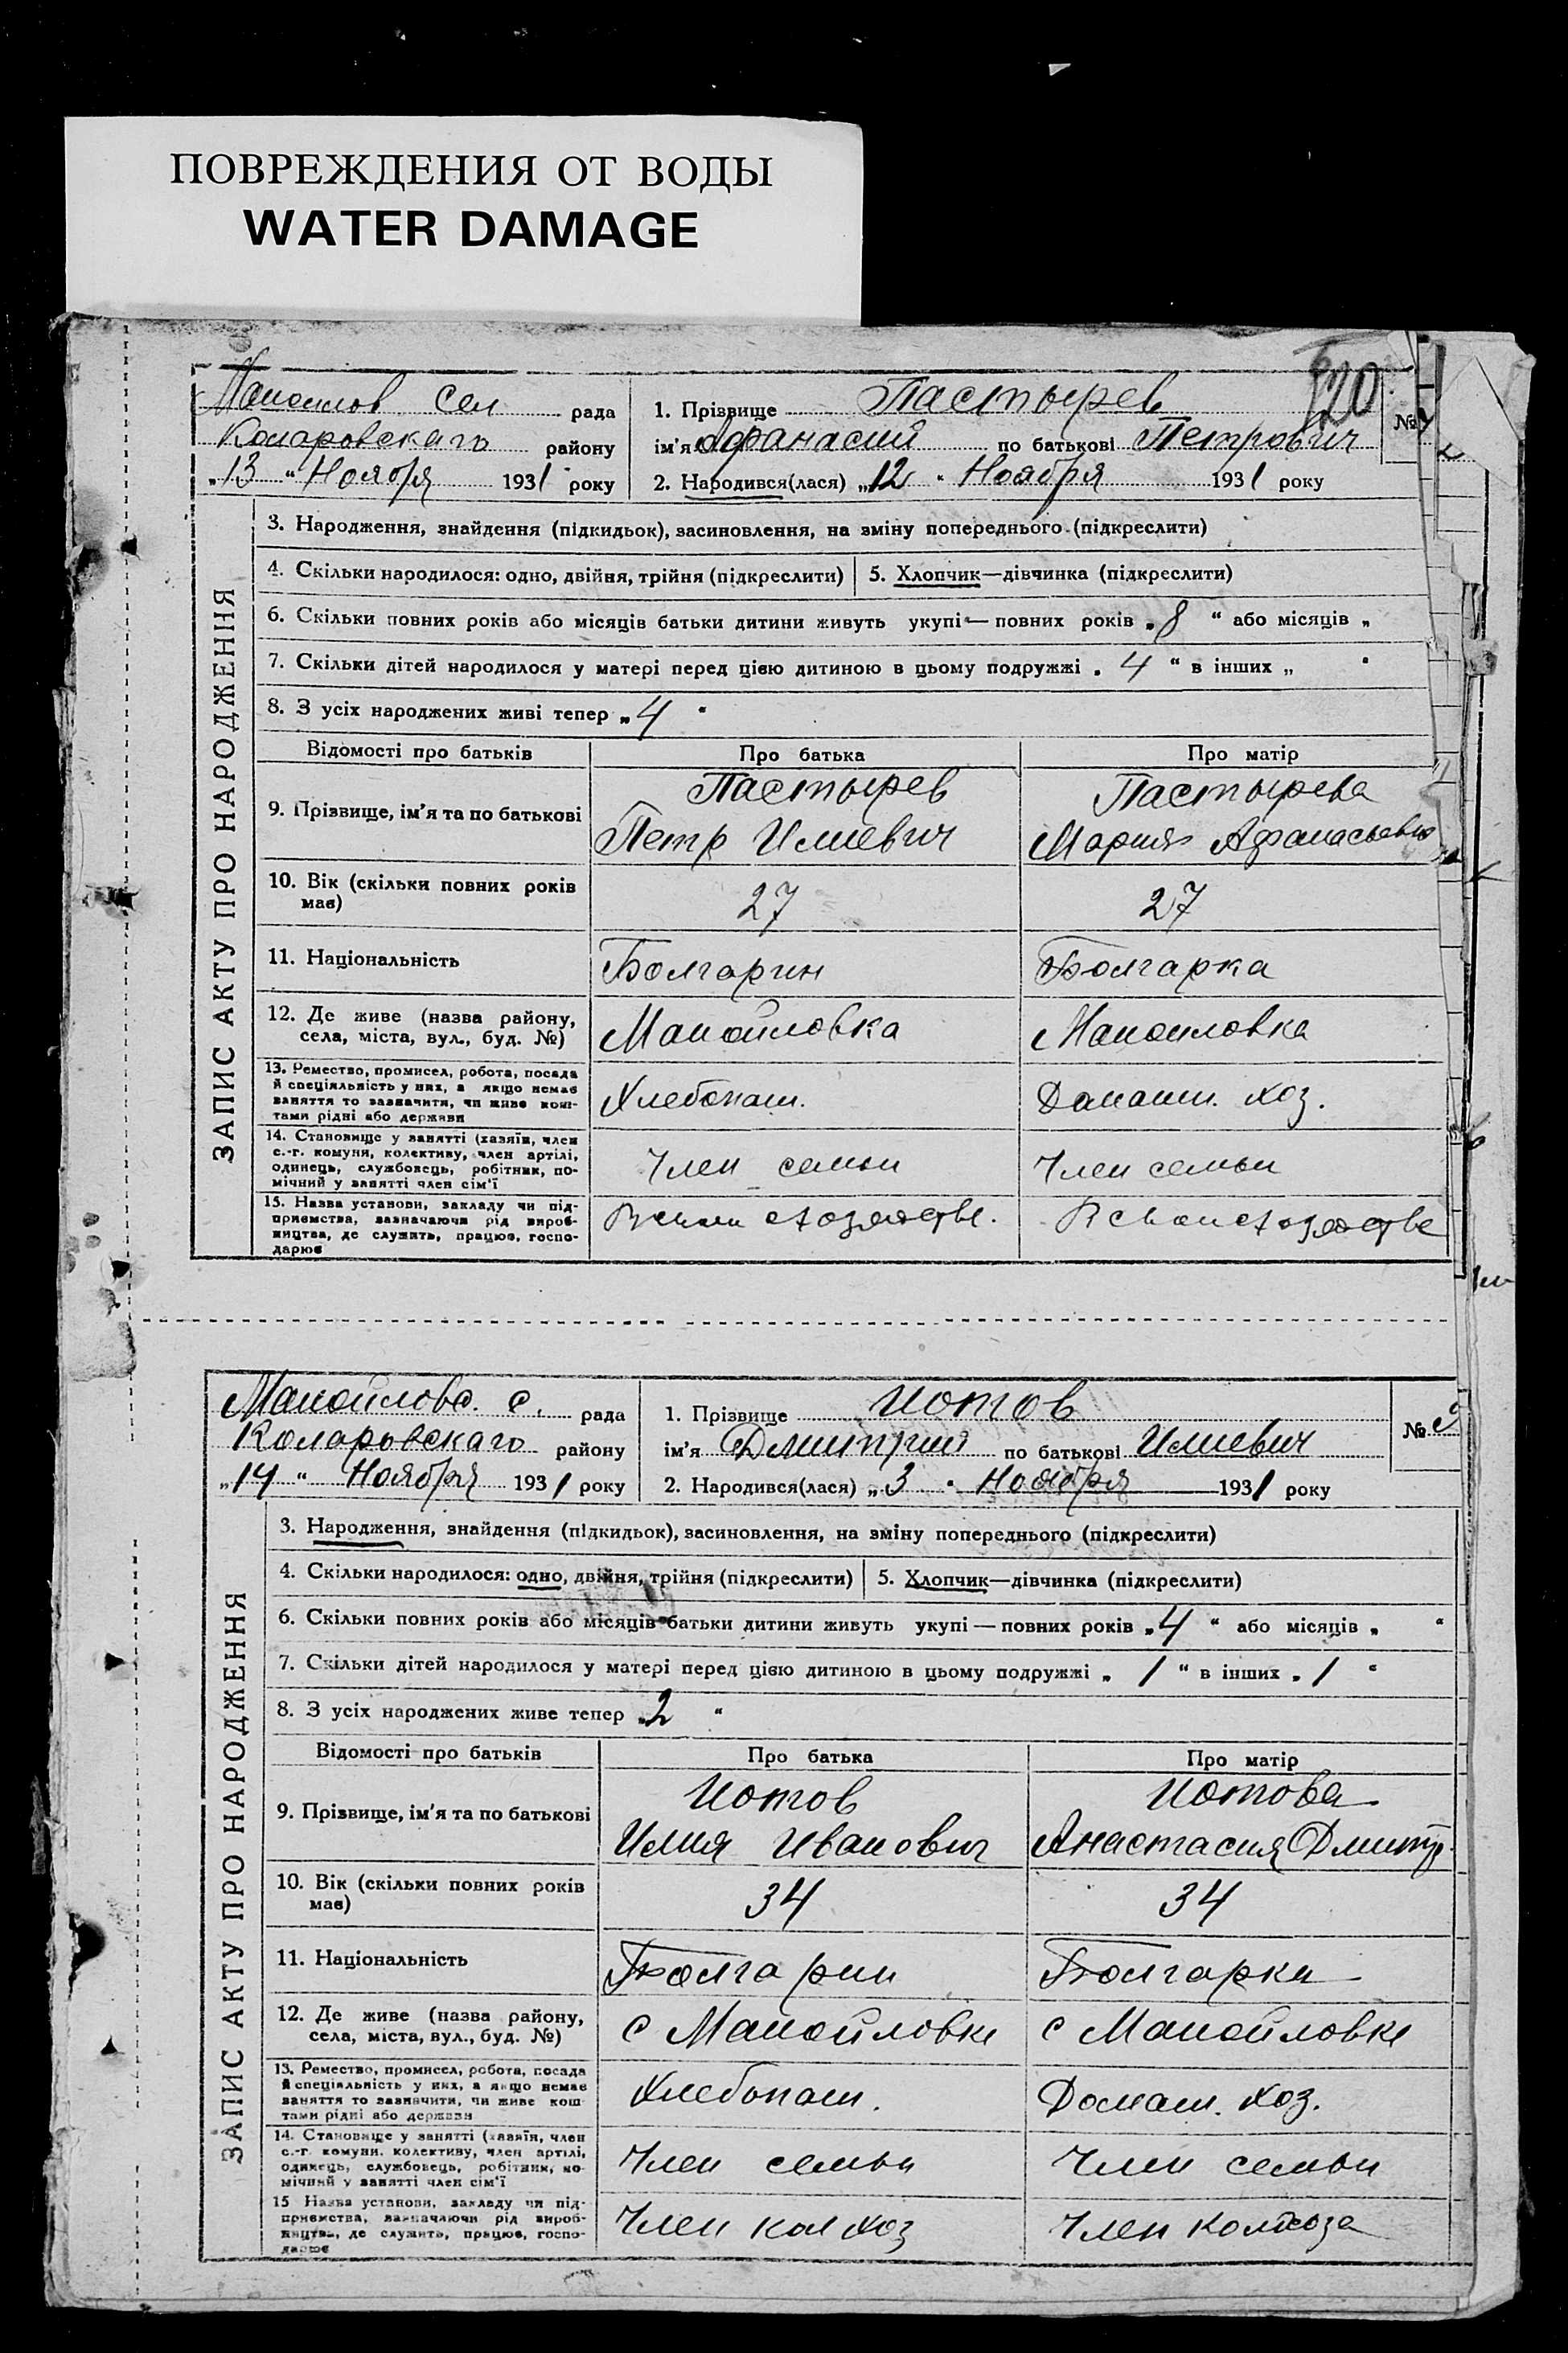 ПОВРЕЖДЕНИЯ ОТ ВОДЫ
WATER DAMAGE
120
Маноилов сел рада
Коларовскаго району
„13 “ Ноября 1931 року
1. Прізвище Пастырев
ім'я Афанасий по батькові Петрович
2. Народився(лася) „12 “ Ноября 1931 року
№
ЗАПИС АКТУ ПРО НАРОДЖЕННЯ
3. Народження, знайдення (підкидьок), засиновлення, на зміну попереднього (підкреслити)
4. Скільки народилося: одно, двійня, трійня (підкреслити) 5. Хлопчик—дівчинка (підкреслити)
6. Скільки повних років або місяців батьки дитини живуть укупі — повних років „8 “ або місяців „
7. Скільки дітей народилося у матері перед цією дитиною в цьому подружжі „ 4 “ в інших „ “
8. З усіх народжених живі тепер „4 “
Відомості про батьків Про батька Про матір
9. Прізвище, ім'я та по батькові
Пастырев
Петр Илиевич
Пастырева
Мария Афанасьевна
10. Вік (скільки повних років має)
27 27
11. Національність Болгарин Болгарка
12. Де живе (назва району,
села, міста, вул., буд. №)
Манойловка Маноиловка
13. Ремество, промисел, робота, посада
й спеціяльність у них, а якщо немає
заняття то зазначити, чи живе кош-
тами рідні або держави
Хлебопаш. Домашн. хоз.
14. Становище у занятті (хазяїн, член
с.-г. комуни, колективу, член артілі,
одинець, службовець, робітник, по-
мічний у занятті член сім'ї
Член семьи Член семьи
15. Назва установи, закладу чи під-
приємства, зазначаючи рід вироб-
ництва, де служить, працює, госпо-
дарює
Манойловс. с. рада
Коларовскаго району
„14 “ Ноября 1931 року
1. Прізвище Иотов
ім'я Дмитрий по батькові Илиевич
2. Народився(лася) „3 “ Ноября 1931 року
№ 9
ЗАПИС АКТУ ПРО НАРОДЖЕННЯ
3. Народження, знайдення (підкидьок), засиновлення, на зміну попереднього (підкреслити)
4. Скільки народилося: одно, двійня, трійня (підкреслити) 5. Хлопчик—дівчинка (підкреслити)
6. Скільки повних років або місяців батьки дитини живуть укупі — повних років „4 “ або місяців „ “
7. Скільки дітей народилося у матері перед цією дитиною в цьому подружжі „ 1 “ в інших „ 1 “
8. З усіх народжених живе тепер „2 “
Відомості про батьків Про батька Про матір
9. Прізвище, ім'я та по батькові
Иотов
Илия Иванович
Иотова
Анастасия Дмитр.
10. Вік (скільки повних років має)
34 34
11. Національність Болгарин Болгарка
12. Де живе (назва району,
села, міста, вул., буд. №)
с Манойловке с Манойловке
13. Ремество, промисел, робота, посада
й спеціяльність у них, а якщо немає
заняття то зазначити, чи живе кош-
тами рідні або держави
Хлебопаш. Домаш. хоз.
14. Становище у занятті (хазяїн, член
с.-г. комуни, колективу, член артілі,
одинець, службовець, робітник, по-
мічний у занятті член сім'ї
Член семьи Член семьи
15 Назва установи, закладу чи під-
приємства, зазначаючи рід вироб-
ництва, де служить, працює, госпо-
дарює
Член колхоз Член колхоза